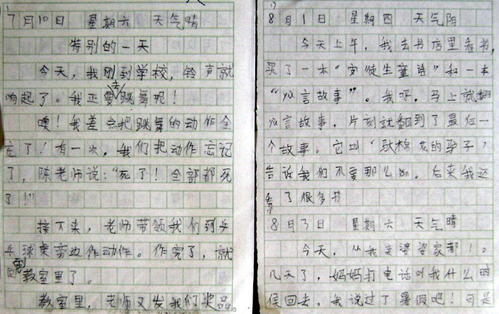 7月10日 星期六 天气晴
特别的一天
今天,我刚到学校,铃声就
响起了。我正要跳舞呢!
噢!我差点把跳舞的动作全
忘了!有一次,我们把动作忘记
了,陈老师说:“死了!全部都死
了!”
接下来,老师带领我们到乒
乓球桌旁边作动作。作完了,就
到教室里了。
教室里,老师又发我们奖品
8月1日 星期四 天气阴
今天上午,我去书店里看书
买了一本“ 生童诗”和一本
“ 言故事”。我呀,马上就翻
言故事,片刻就翻到了最后一
个故事。它叫“ 的驴子”
告诉我们不要那么 ,后来我
看了很多书
8月3日 星期六 天气晴
今天,从我去婆婆家那!。
几天了,妈妈打电话叫我什么时
候回来,我说过了暑假吧!可是